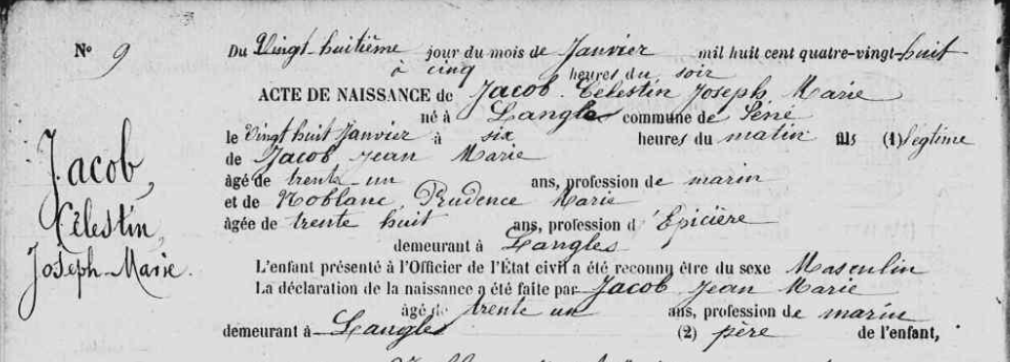 N° 9
Jacob,
Célestin,
Joseph-Marie.
Du Vingt-huitième jour du mois de Janvier mil huit cent quatre-vingt-huit
à cinq heures du soir
ACTE DE NAISSANCE de Jacob Célestin Joseph Marie
né à Langles commune de Séné
le Vingt huit Janvier à six heures du matin fils (1) légtime
de Jacob Jean Marie
âgé de trente un ans, profession de marin
et de Noblanc, Prudence Marie
âgée de trente huit ans, profession d'Epicière
demeurant à Langles
L'enfant présenté à l'Officier de l'État civil a été reconnu être du sexe Masculin
La déclaration de la naissance a été faite par Jacob Jean Marie
âgé de trente un ans, profession de marin
demeurant à Langles (2) père de l'enfant,